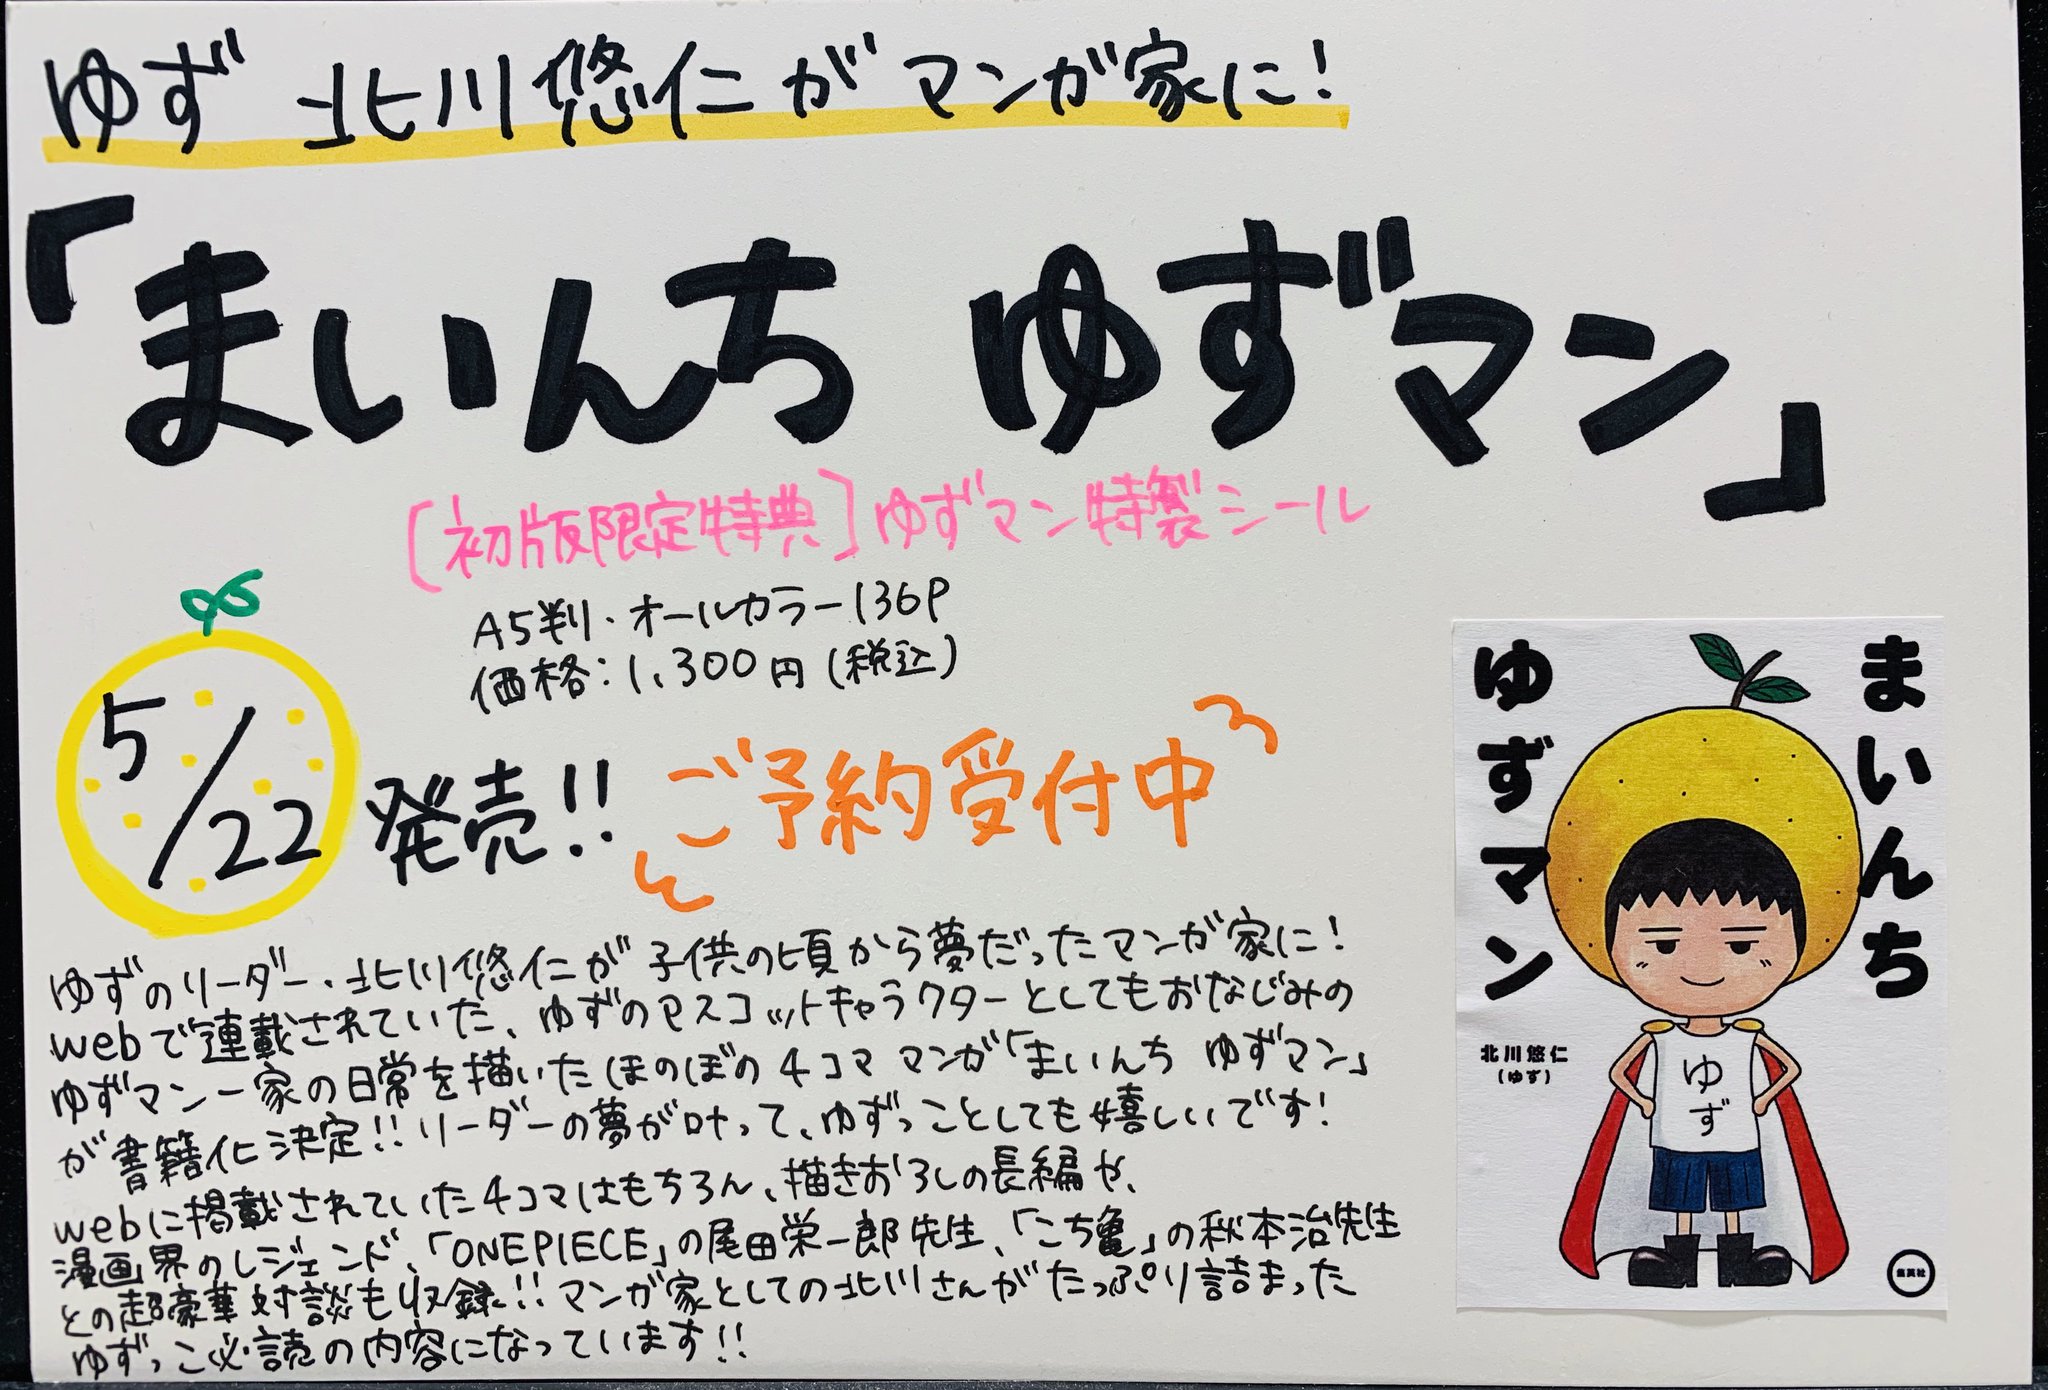 ゆず 北川悠仁がマンガ家に!
「まいんち ゆずマン」
[初版限定特典]ゆずマン特製シール
A5判・オールカラー136P
価格:1,300円(税込)
5/22 発売!! ご予約受付中
ゆずのリーダー・北川悠仁が子供の頃から夢だったマンガ家に!
webで連載されていた、ゆずのマスコットキャラクターとしてもおなじみの
ゆずマン一家の日常を描いたほのぼの4コママンガ「まいんち ゆずマン」
が書籍化決定!!リーダーの夢が叶って、ゆずっことしても嬉しいです!
webに掲載されていた4コマはもちろん、描きおろしの長編や、
漫画界のレジェンド、「ONEPIECE」の尾田栄一郎先生、「こち亀」の秋本治先生
との超豪華対談も収録!!マンガ家としての北川さんがたっぷり詰まった
ゆずっこ必読の内容になっています!!
まいんち
ゆずマン
北川悠仁
(ゆず)
ゆず
集英社